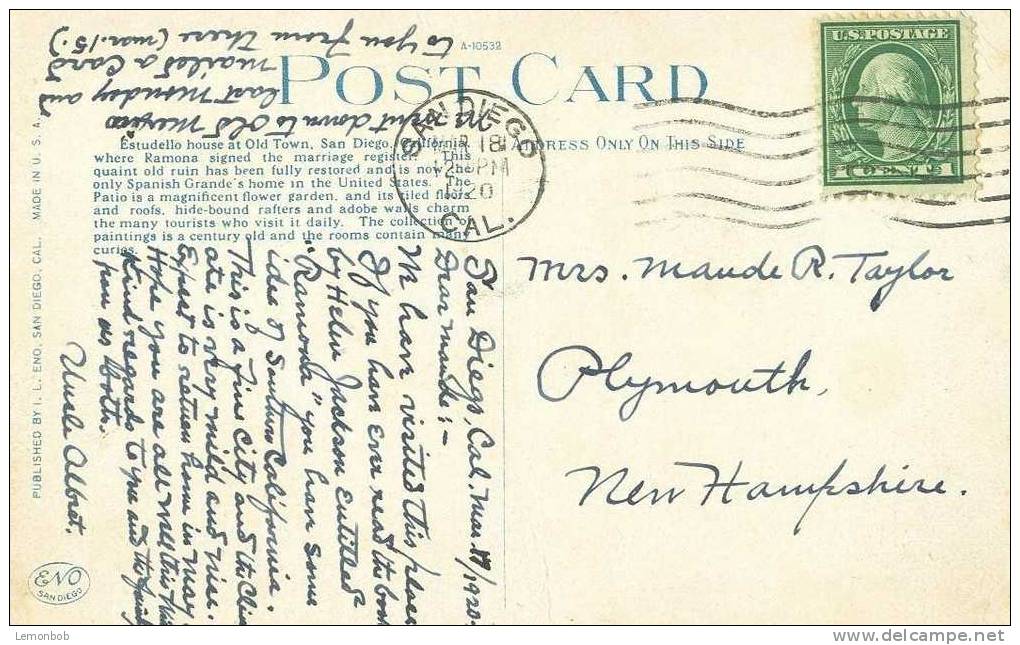 A-10532
POST CARD
ADDRESS ONLY ON THIS SIDE
U.S. POSTAGE
1 CENTS 1
SAN DIEGO
MAR 18
12 PM
1920
CAL.
Estudello house at Old Town, San Diego, California,
where Ramona signed the marriage register. This
quaint old ruin has been fully restored and is now the
only Spanish Grande's home in the United States. The
Patio is a magnificent flower garden, and its tiled floors
and roofs, hide-bound rafters and adobe walls charm
the many tourists who visit it daily. The collection of
paintings is a century old and the rooms contain many
curios.
Mrs. Maude R. Taylor
Plymouth,
New Hampshire.
San Diego, Cal. Mar. 17/1920.
Dear Maude:-
We have visited this place
If you have ever read the book
by Helen Jackson Entitled
"Ramona" you have some
idea of Southern California.
This is a fine City and the Clim
ate is very mild and nice.
Expect to return home in May.
Hope you are all well this
Kind regards to you and the family
from us both.
Uncle Albert.
We went down to Old Mexico
last Monday and
mailed a Card
to you from there (Mar. 15.)
PUBLISHED BY I. L. ENO, SAN DIEGO, CAL. MADE IN U. S. A.
ENO
SAN DIEGO
Lemonbob
www.delcampe.net